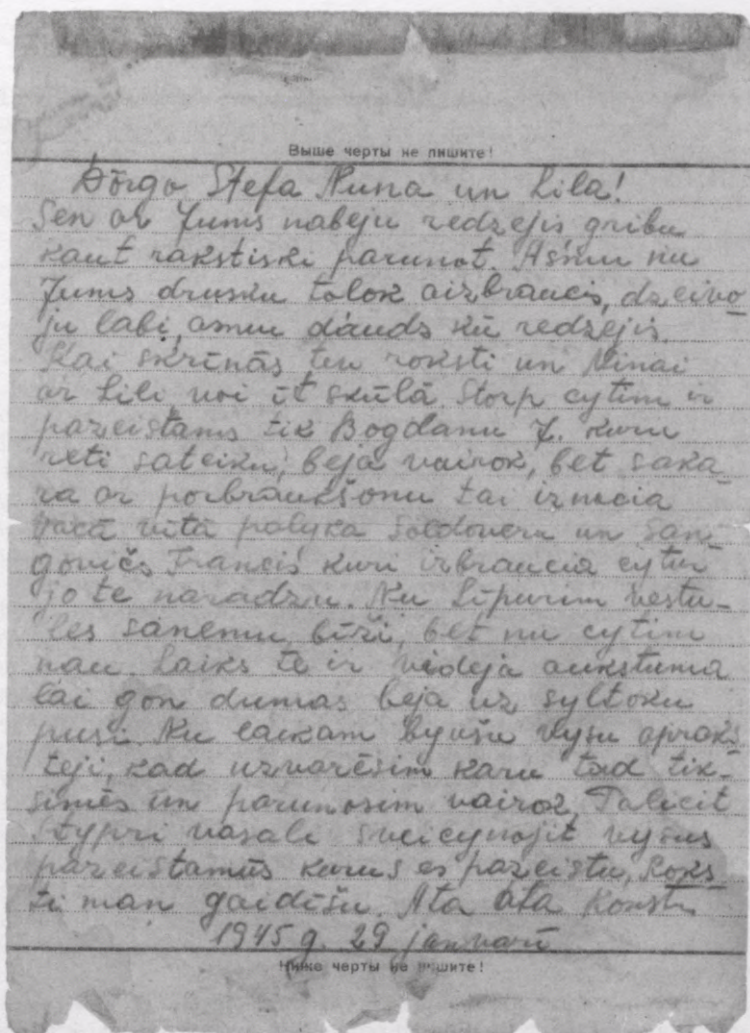 Выше черты не пишите!
Dōrgo Stefa Nuna un Lila!
Sen ar Jums nabeju redzejis gribu
kaut rakstiski parunot. Asmu nu
Jums drusku tolok aizbraucis, dzeivo-
ju labi, asmu daudz kū redzejis.
Kai skrīnās, tu roksti un Ninai
ar Lili, voi īt skūlā. Storp cytim ir
pazeistams tik Bogdanu J. kuru
reti sateiku, beja vairok, bet sakа-
ra ar porbraukšonu tai izmeia
vītā palyka Soldoveru un San-
govičs Francis kuri izbraucia cytur
jo te naradzu. Nu Lipurim vestu-
les sanemu bīži, bet nu cytim
nau. Laiks te ir videja aukstuma
lai gon dumas beja uz syltoku
pusi. Nu laikam byušu vysu aproks-
tejs, kad uzvarēsim karu tad tik-
simēs un parunosim vairok. Palicit
stypri vasali sveicynojit vysus
pazeistamūs kurus es pazeistu, Roks-
ti man gaidīšu. Ata ata Konst.
1945 g. 29 janvarī
Ниже черты не пишите!